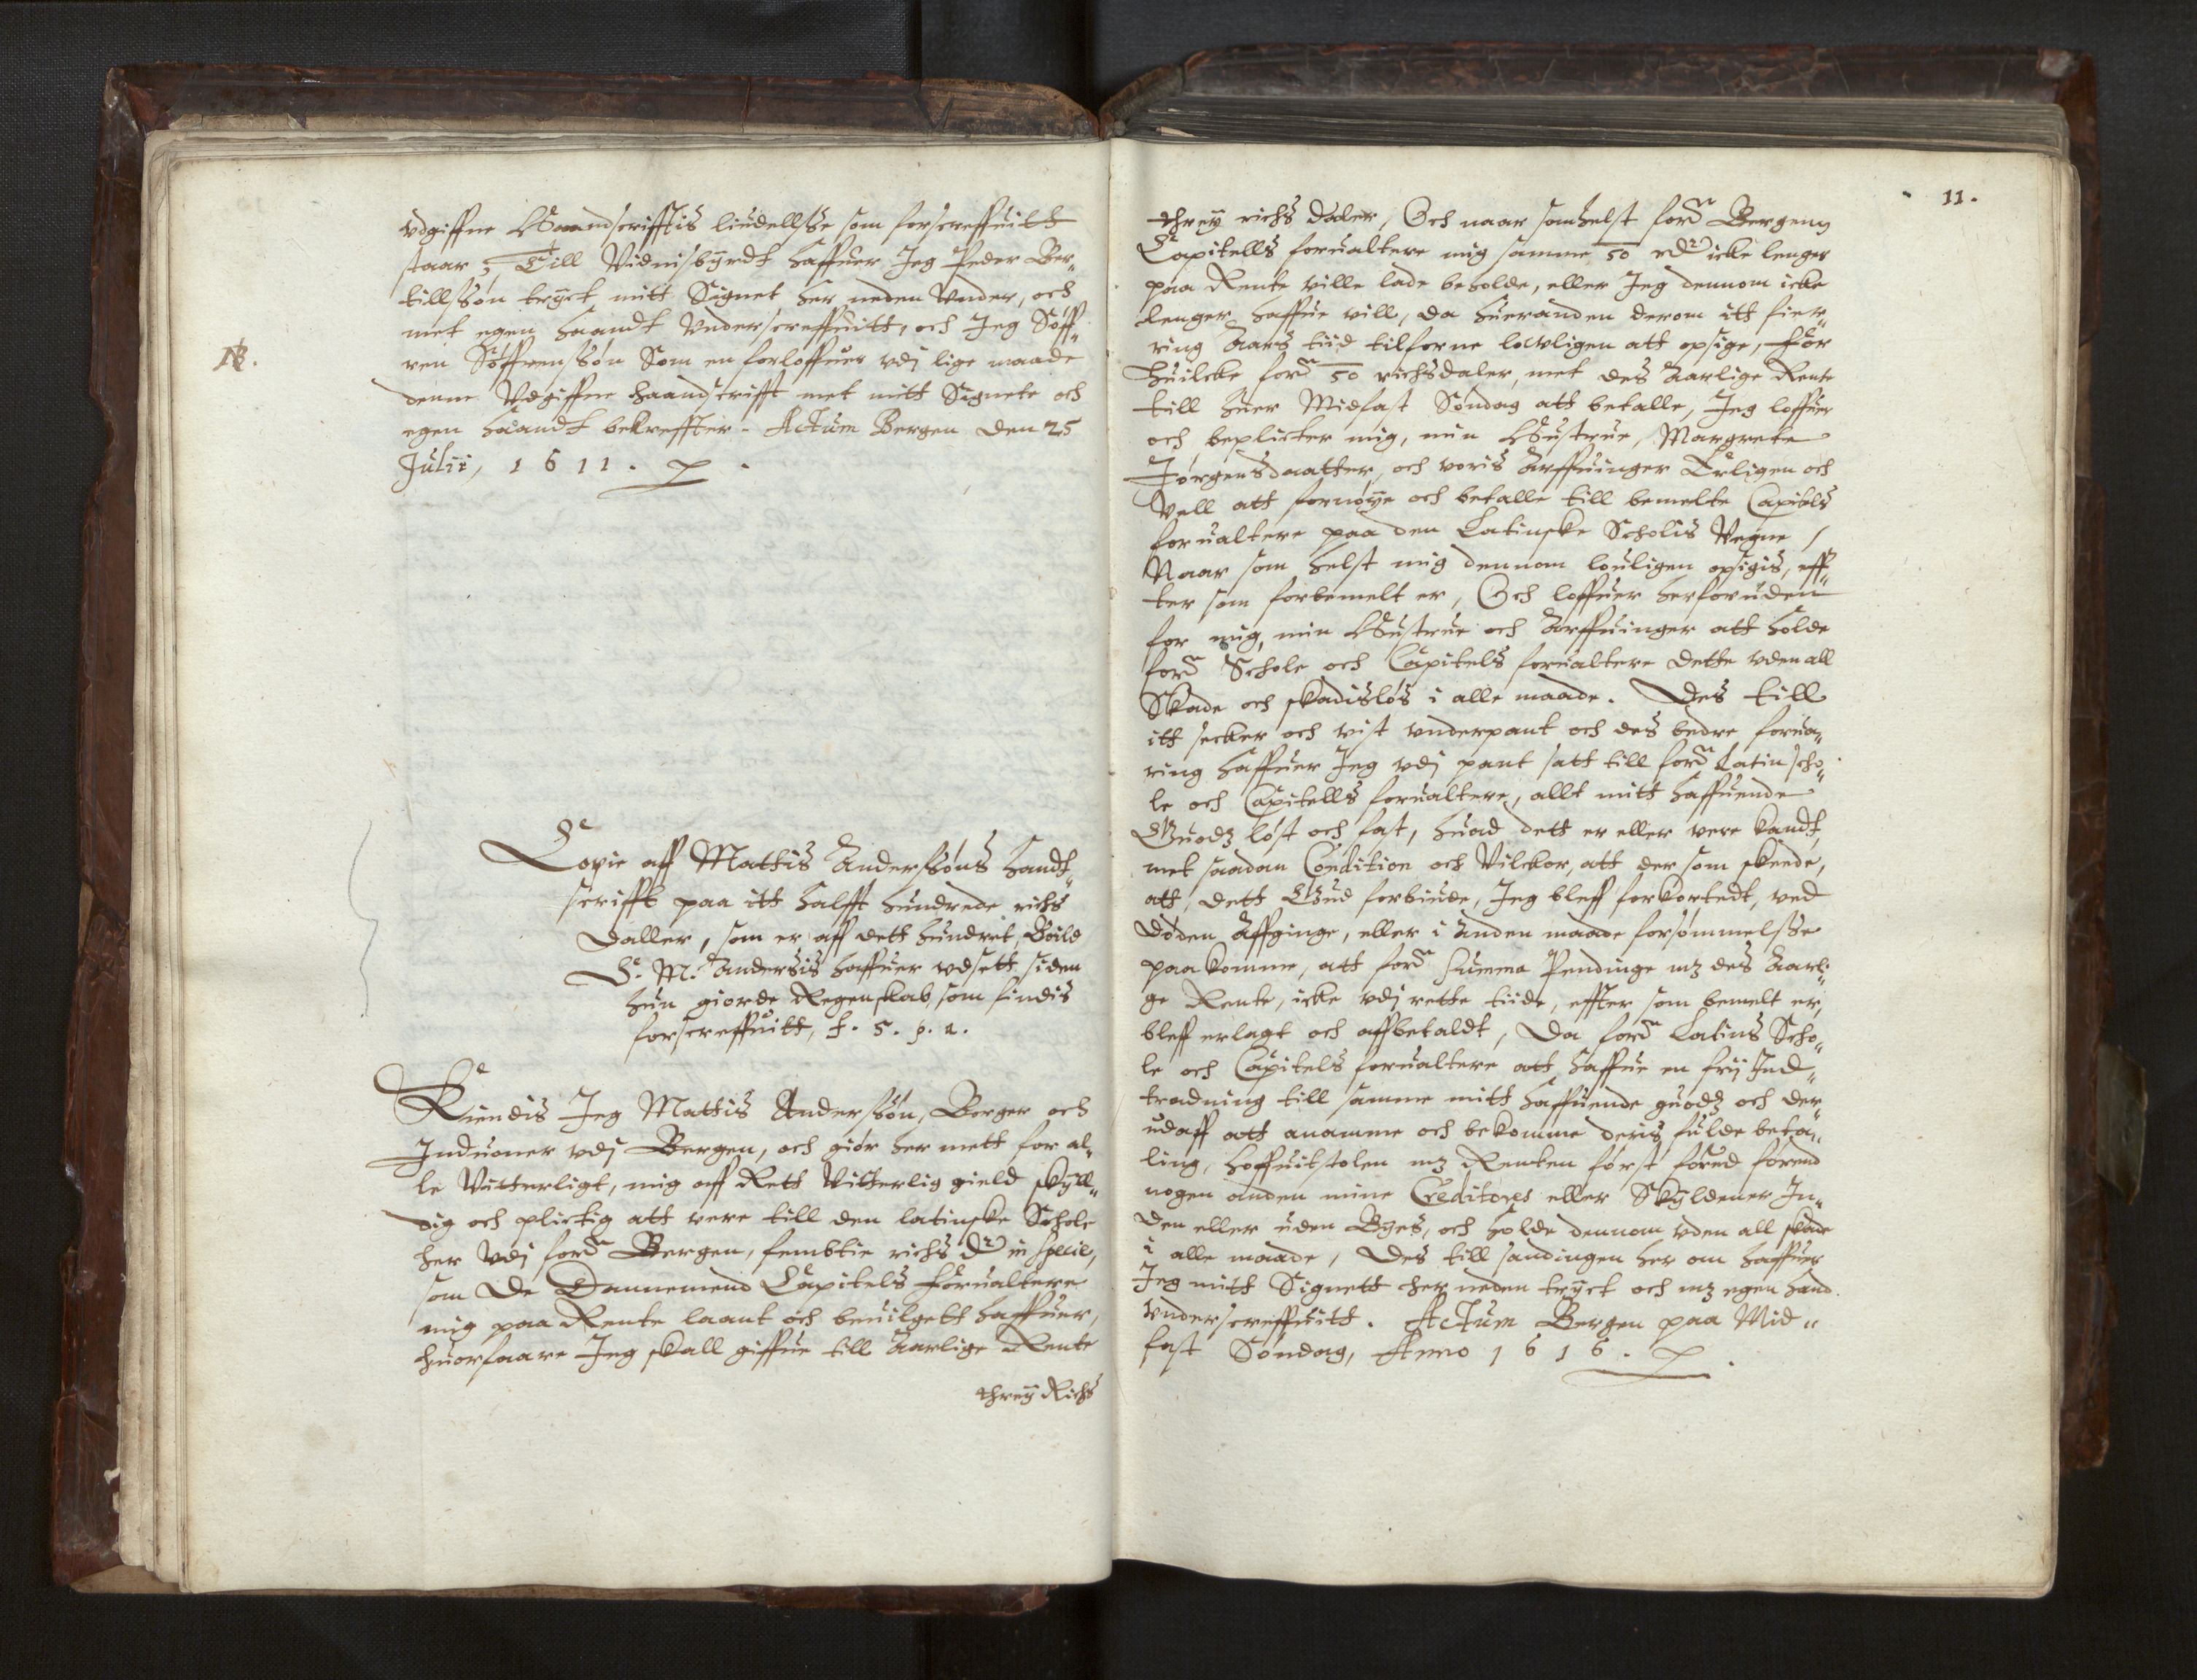 vdgiffne Haandscrifftis liudellsse som forscreffuitt
staar ; Till Vidnisbyrdt haffuer Jeg Peder Ber„
tillssøn tryct mitt Signet her neden Vnder, och
met egen haandt Vnderscreffuitt, och Jeg Søff„
NB.
ren Søffrenssøn Som en forloffuer vdj lige maade
denne Vdgiffne haandscrifft met mitt Signete och
egen haandt bekreffter - Actum Bergen den 25
Julii, 1611.
Copie aff Mattis Anderssøns handt„
scrifft paa itt halfft hundrede richs
daller, som er aff dett hundret,
S. M. Andersis haffuer vdsett, siden
hun giorde Regenskab, som findis
forscreffuitt, f. 5. p. 2.
Kiendis Jeg Mattis Anderssøn, Borger och
Induoner vdj Bergen, och giør her mett for al„
le Vitterligt, mig aff Rett Vitterlig gield skyll„
dig och plictig att vere till den latinske Schole
her Vdj ford Bergen, fembtie richs dr in specie,
som De Dannemend Capitels forualtere
mig paa Rente laant och beuilgett haffuer,
huorfaare Jeg skall giffue till Aarlige Rente
threy Richs
11.
threy richs daler, Och naar somhelst ford Bergens
Capitells forualtere mig samme 50 rdr icke lenger
paa Rente ville lade beholde, eller Jeg dennom icke
lenger haffue vill, da hueranden derom itt fier„
ring Aars tiid tilforne lowligen att opsige, for
huilcke ford 50 richsdaler, met des Aarlige Rente
till huer Midfast Søndag att betalle, Jeg loffuer
och beplicter mig, min Hustrue, Margrete
Jørgensdaatter, och voris Arffuinger Erligen och
Vell att fornøye och betalle till bemelte Capitels
forualtere paa den Latinske Scholis Vegne /
Naar som helst mig dennom louligen opsigis, eff„
ter som forbemelt er, Och loffuer herforuden
for mig, min Hustrue och Arffuinger att holde
ford Schole och Capitels forualtere dette vden all
Skade och skadisløs i alle maade. Des till
itt secker och vist vnderpant och des bedre forua„
ring haffuer Jeg vdj pant satt till ford Latin scho„
le och Capitells forualtere, allt mitt haffuende
Guodz løst och fast, huad dett er eller vere kandt,
met saadan Condition och Vilckor, att der som skeede,
att, dett Gud forbiude, Jeg bleff forkortedt, ved
døden Affginge, eller i Anden maade forsømmelsse
paakomme, att ford Summa Pendinge mz des Aarli„
ge Rente, icke vdj rette tiide, effter som bemelt er,
bleff erlagt och affbetaldt, Da ford Latins Scho„
le och Capitels forualtere att haffue en frij Ind„
tradning till samme mitt haffuende guodz och der„
udaff att anamme och bekomme deris fulde beta„
ling, hoffuitstolen mz Renten først forud forend
nogen anden mine Creditores eller Skyldener In„
den eller uden Byes, och holde dennom vden all skade
i alle maade, Des till sandingen her om haffuer
Jeg mitt Signett her neden tryct och mz egen hand
vnderscreffuitt. Actum Bergen paa Mid„
fast Søndag, Anno 1616.